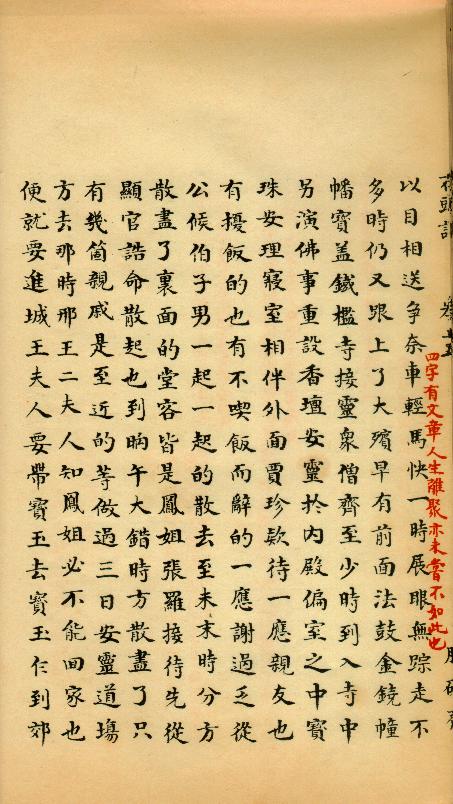 石頭記 卷十五 脂硯齋
四字有文章人生離聚亦未嘗不如此也
以目相送爭奈車輕馬快一時展眼無踪走不
多時仍又跟上了大殯早有前面法鼓金鐃幢
幡寶盖鐵檻寺接靈衆僧齊至少時到入寺中
另演佛事重設香壇安靈於内殿偏室之中寶
珠安理寢室相伴外面賈珍欵待一應親友也
有擾飯的也有不喫飯而辭的一應謝過乏從
公候伯子男一起一起的散去至未末時分方
散盡了裏面的堂容皆是鳳姐張羅接待先從
顯官誥命散起也到晌午大錯時方散盡了只
有幾箇親戚是至近的等做過三日安靈道塲
方去那時那王二夫人知鳳姐必不能回家也
便就要進城王夫人要帶寳玉去寳玉仨到郊